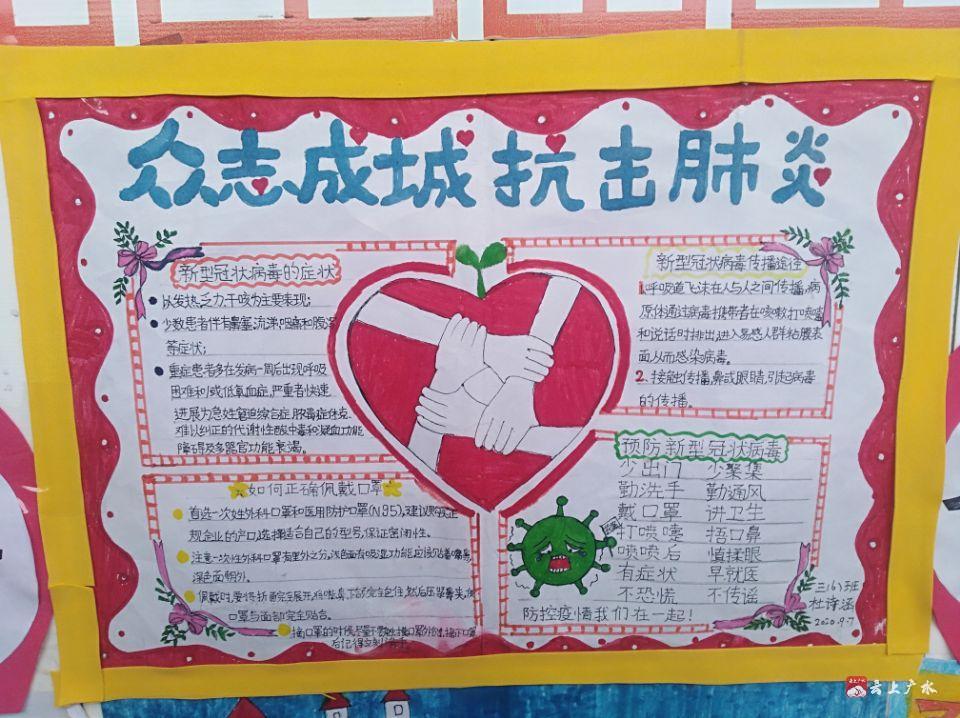 众志成城抗击肺炎
新型冠状病毒的症状
以发热乏力干咳为主要表现;
少数患者伴有鼻塞,流涕,咽痛和腹泻
等症状;
重症患者多在发病一周后出现呼吸
困难和/或低氧血症,严重者快速
进展为急性窘迫综合症,脓毒症休克.
难以纠正的代谢性酸中毒和凝血功能
障碍及多器官功能衰竭。
新型冠状病毒传播途径
1.呼吸道飞沫在人与人之间传播,病
原体通过病毒携带者在咳嗽,打喷嚏
和说话时排出,进入易感人群粘膜表
面,从而感染病毒。
2.接触传播,鼻或眼睛,引起病毒
的传播。
如何正确佩戴口罩
首选一次性外科口罩和医用防护口罩(N95),建议购买正
规企业的产口,选择适合自己的型号,保证密闭性。
注意一次性外科口罩有里外之分,浅色面有吸湿功能,应该贴着嘴鼻,
深色面朝外。
佩戴时,要将折面完全展开,将嘴鼻,下颌完全包住,然后压紧鼻夹,使
口罩与面部完全贴合。
摘口罩的时候尽量不要
后记得立刻洗手。
预防新型冠状病毒
少出门 少聚集
勤洗手 勤通风
戴口罩 讲卫生
打喷嚏 捂口鼻
喷喷后 慎揉眼
有症状 早就医
不恐慌 不传谣
防控疫情我们在一起!
三(6)班
杜诗涵
2020.9.7
云上广水